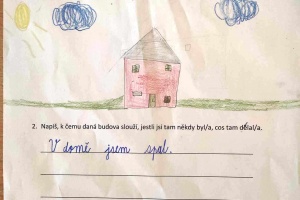 2. Napiš, k čemu daná budova slouží, jestli jsi tam někdy byl/a, cos tam dělal/a.
V domě jsem spal.